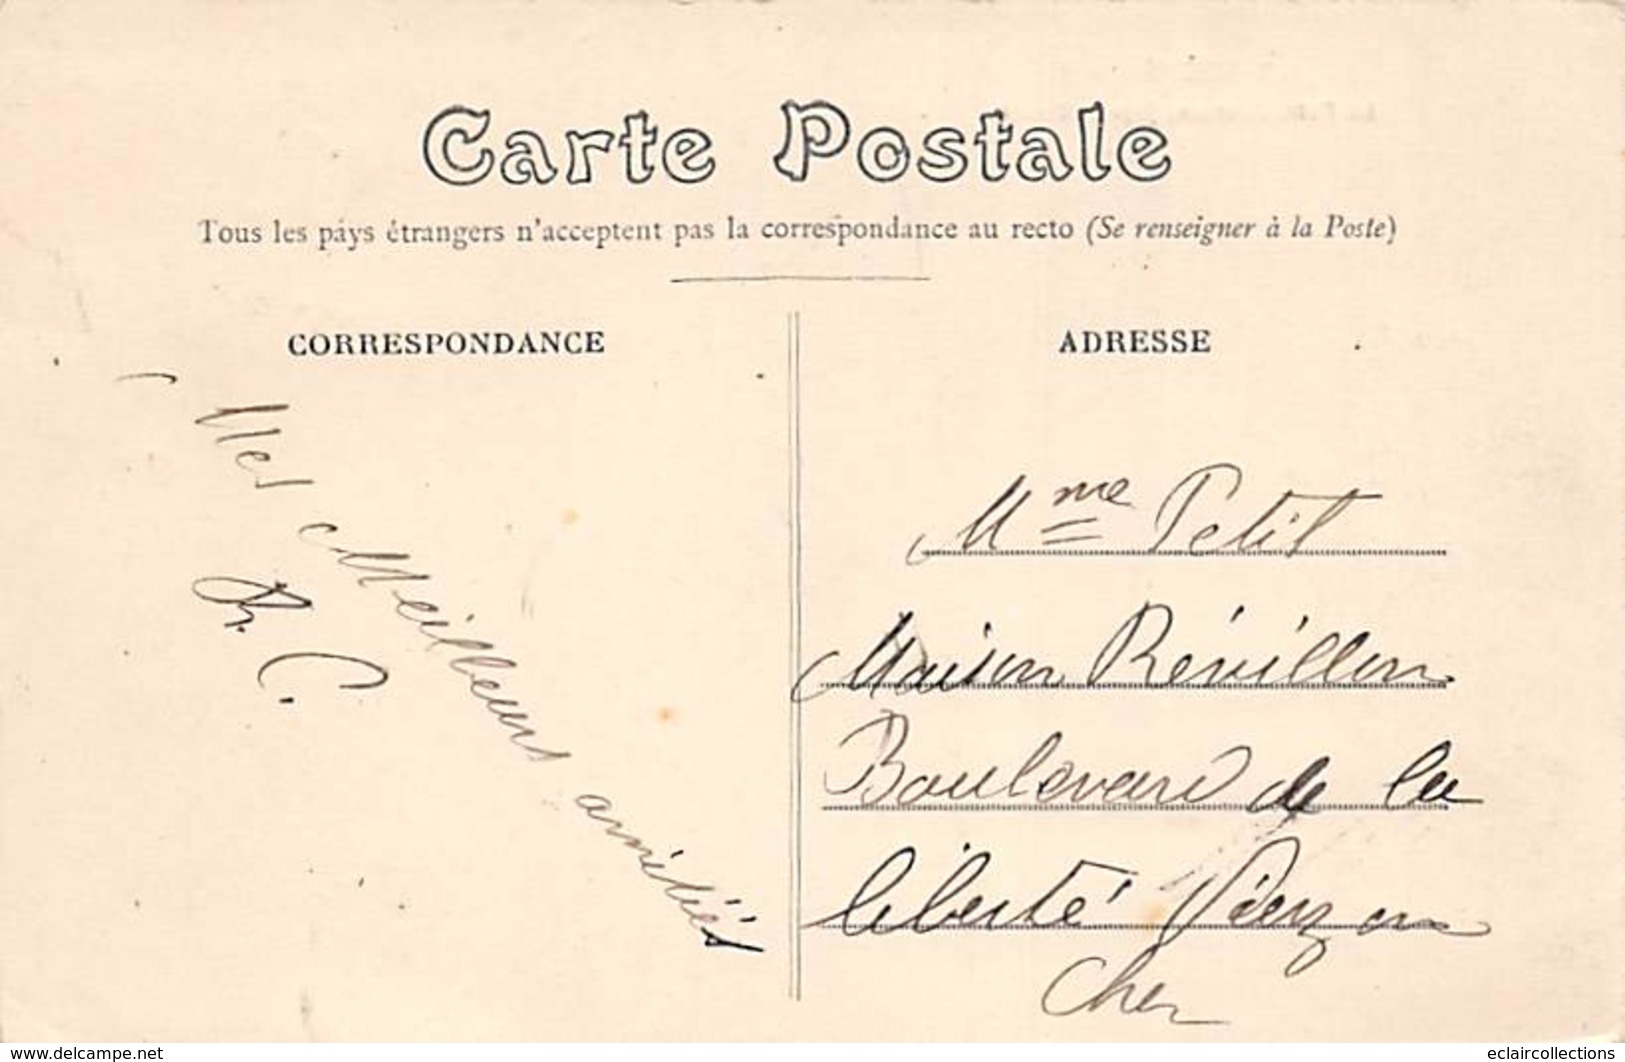 Carte Postale
Tous les pays étrangers n'acceptent pas la correspondance au recto (Se renseigner à la Poste)
CORRESPONDANCE
Mes Meilleures amitiés
R. C.
ADRESSE
Mme Petit
Maison Révillon
Boulevard de la
liberté Vierzon
Cher
www.delcampe.net
eclaircollections